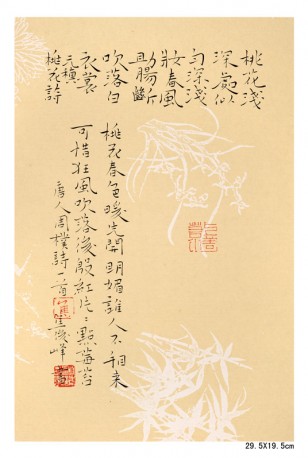 桃花淺
深處似
勻深淺
妝春風
助腸斷
吹落白
衣裳
元稹
桃花詩
桃花春色暖先開明媚誰人不來
可惜狂風吹落後殷紅片片點莓苔
唐人周樸詩一首
峰
29.5X19.5cm